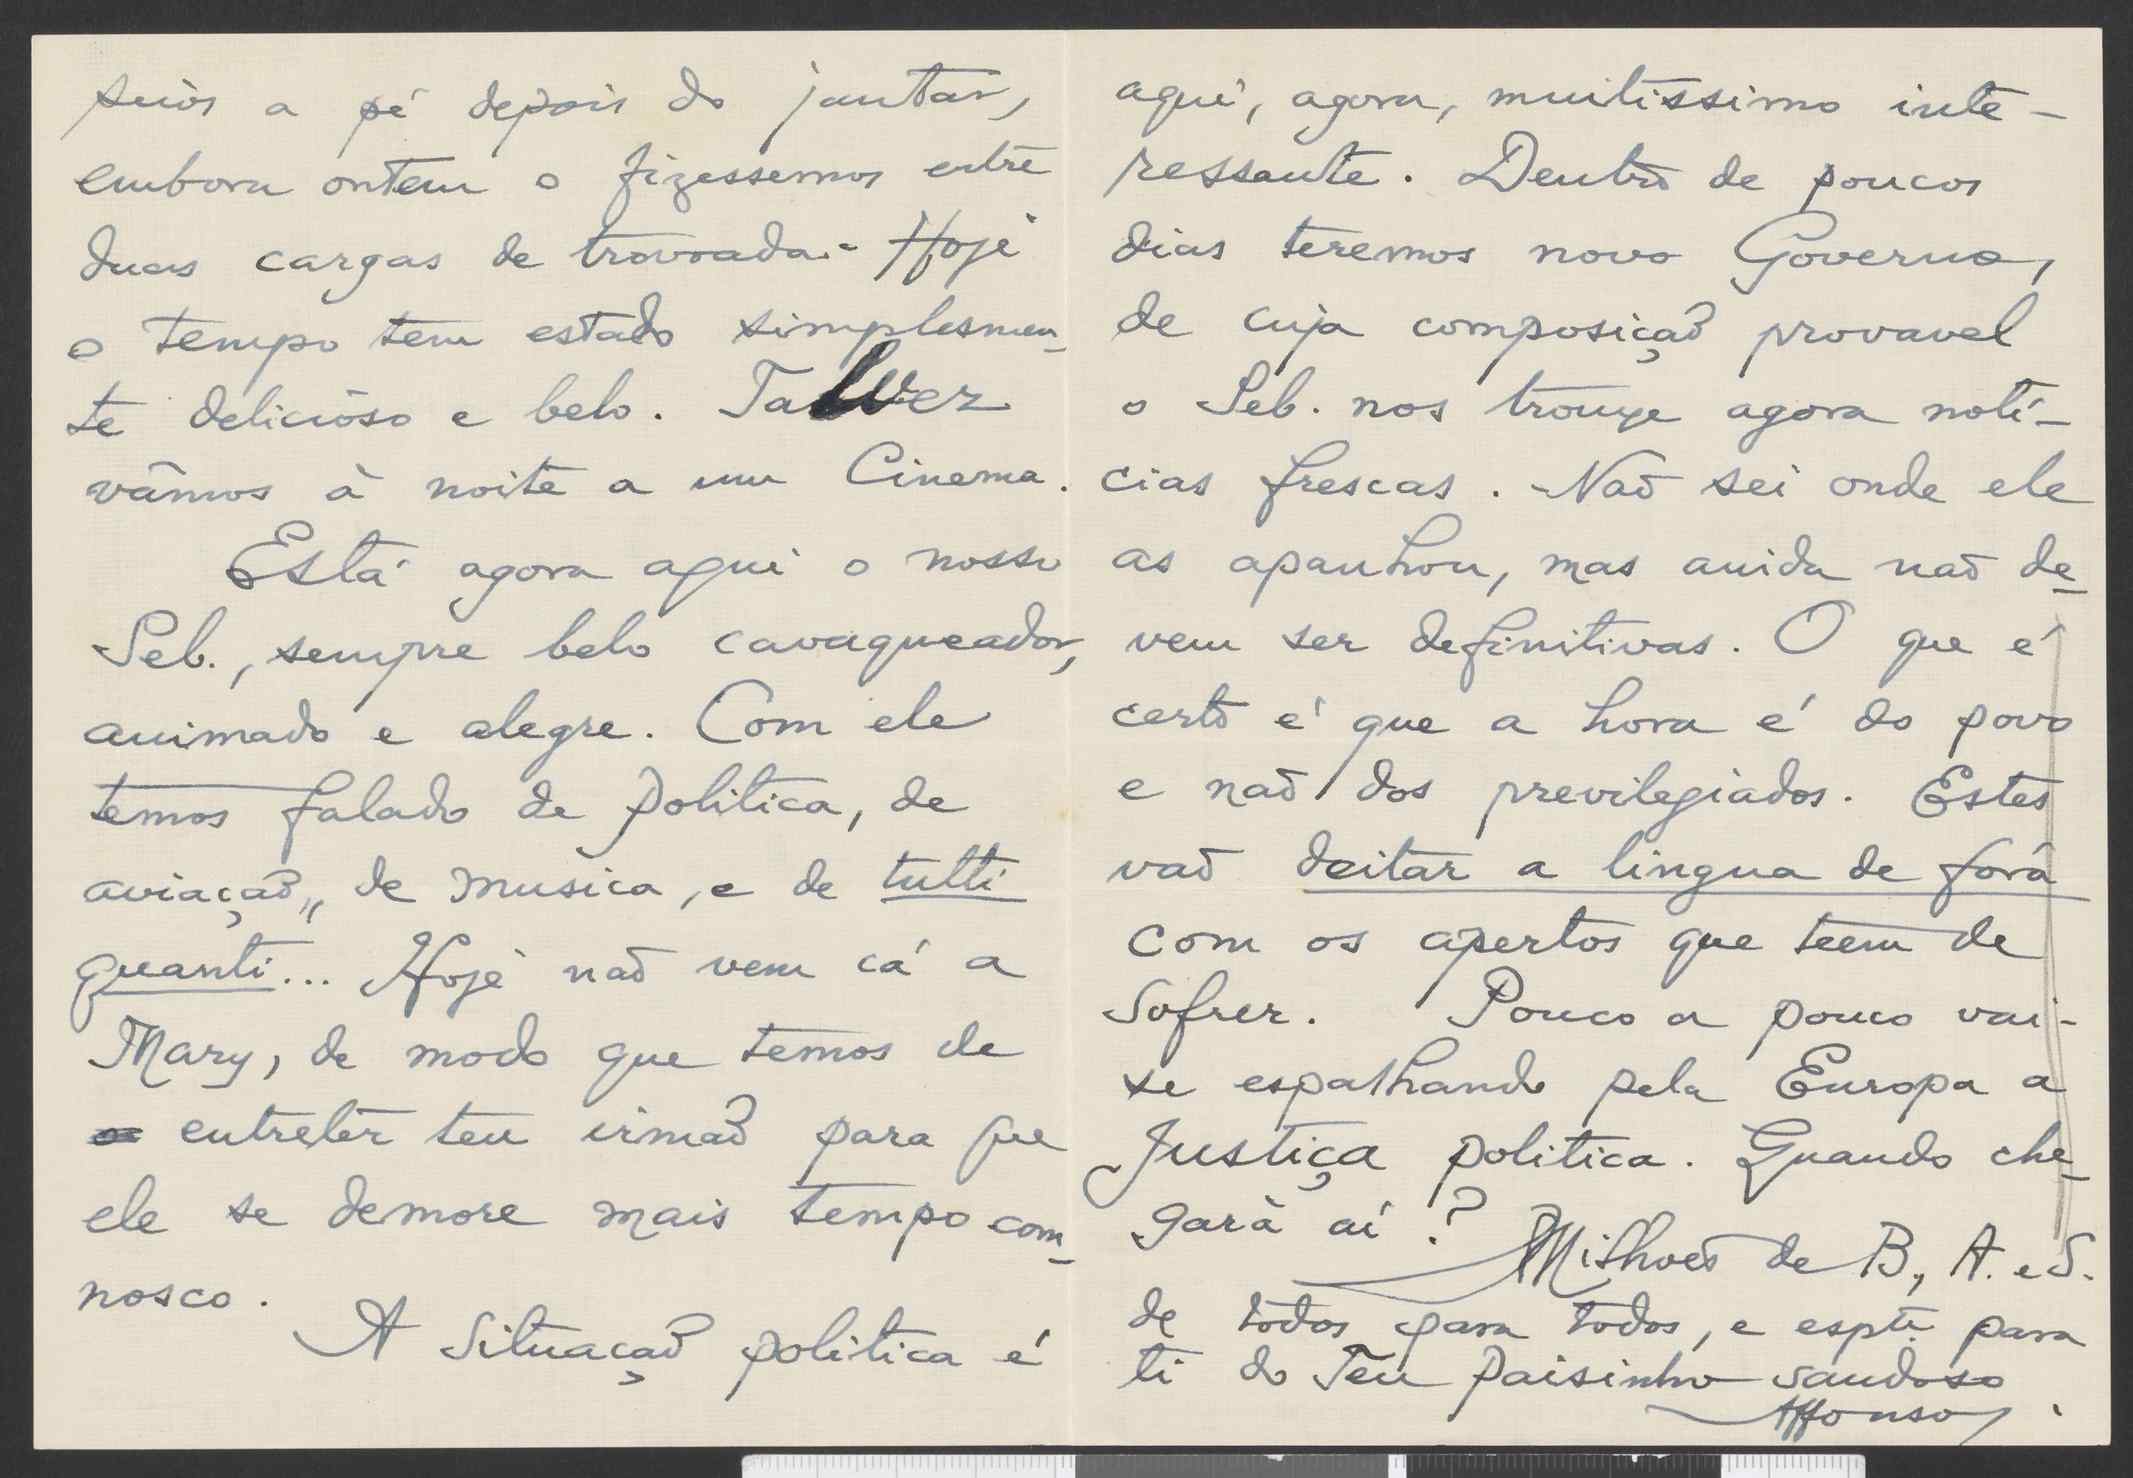 seios a pé depois do jantar,
embora ontem o fizessemos entre
duas cargas de trovoada. - Hoje
o tempo tem estado simplesmen-
te delicioso e belo. Talvez
vâmos à noite a um Cinema.
Está agora aqui o nosso
Seb., sempre belo cavaqueador,
animado e alegre. Com ele
temos falado de politica, de
aviação, de musica, e de tutti
quanti... Hoje não vem cá a
Mary, de modo que temos de
entretêr teu irmão para que
ele se demore mais tempo com-
nosco.
A situação politica é
aqui, agora, muitissimo inte-
ressante. Dentro de poucos
dias teremos novo Governo,
de cuja composição provavel
o Seb. nos trouxe agora notí-
cias frescas. Não sei onde ele
as apanhou, mas ainda não de-
vem ser definitivas. O que é
certo é que a hora é do povo
e não dos previlegiados. Estes
vão deitar a lingua de fóra
com os apertos que teem de
sofrer. Pouco a pouco vai-
se espalhando pela Europa a
Justiça politica. Quando che-
gará aí? Milhoes de B., A. e S.
de todos para todos, e espte. para
ti do Teu Paisinho saudoso
Affonso.